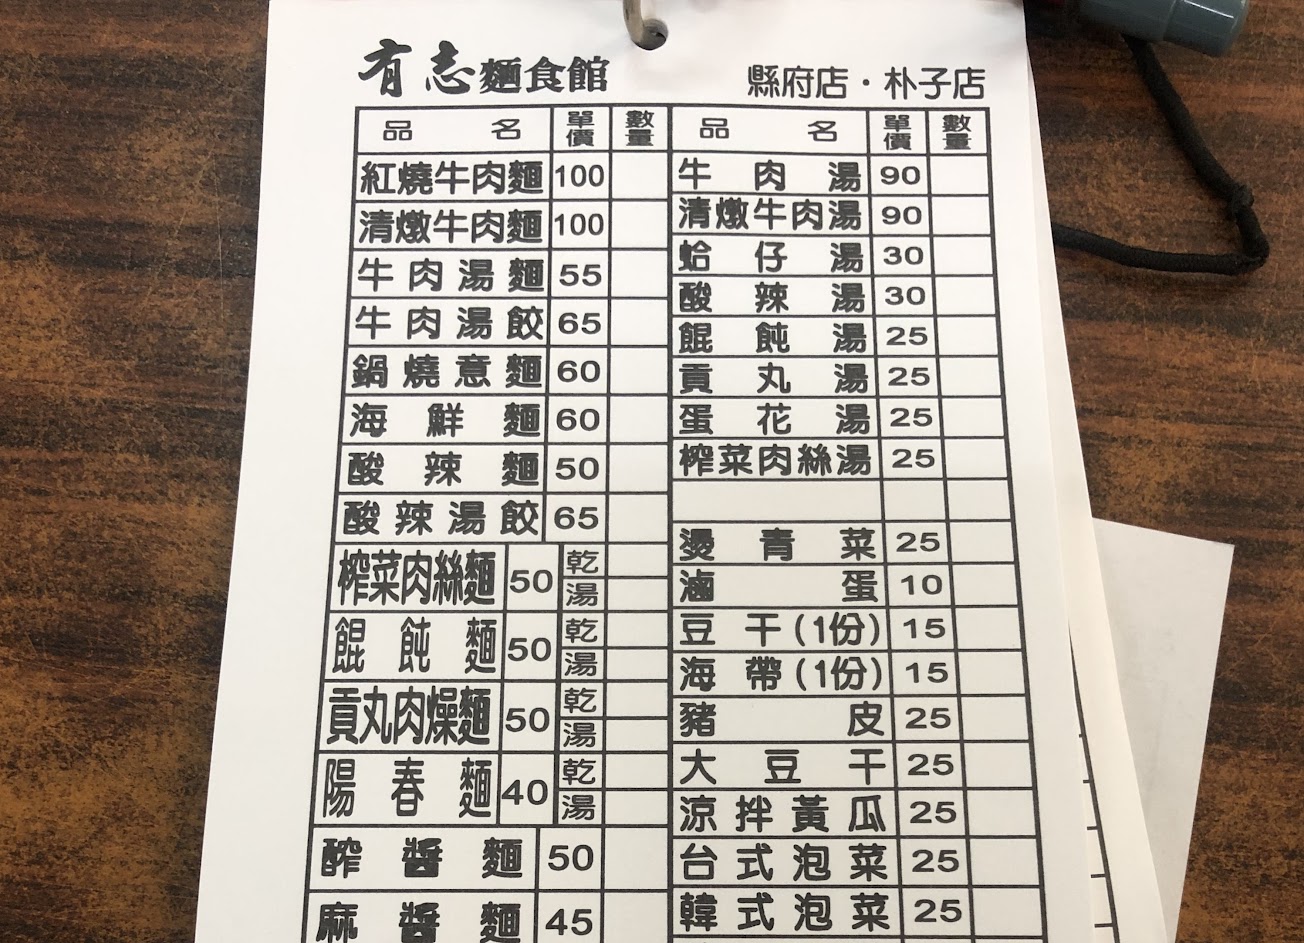 有志麵食館
縣府店・朴子店
品名 單價 數量
紅燒牛肉麵 100
清燉牛肉麵 100
牛肉湯麵 55
牛肉湯餃 65
鍋燒意麵 60
海鮮麵 60
酸辣麵 50
酸辣湯餃 65
榨菜肉絲麵 50 乾 湯
餛飩麵 50 乾 湯
貢丸肉燥麵 50 乾 湯
陽春麵 40 乾 湯
醡醬麵 50
麻醬麵 45
品名 單價 數量
牛肉湯 90
清燉牛肉湯 90
蛤仔湯 30
酸辣湯 30
餛飩湯 25
貢丸湯 25
蛋花湯 25
榨菜肉絲湯 25
燙青菜 25
滷蛋 10
豆干(1份) 15
海帶(1份) 15
豬皮 25
大豆干 25
涼拌黃瓜 25
台式泡菜 25
韓式泡菜 25